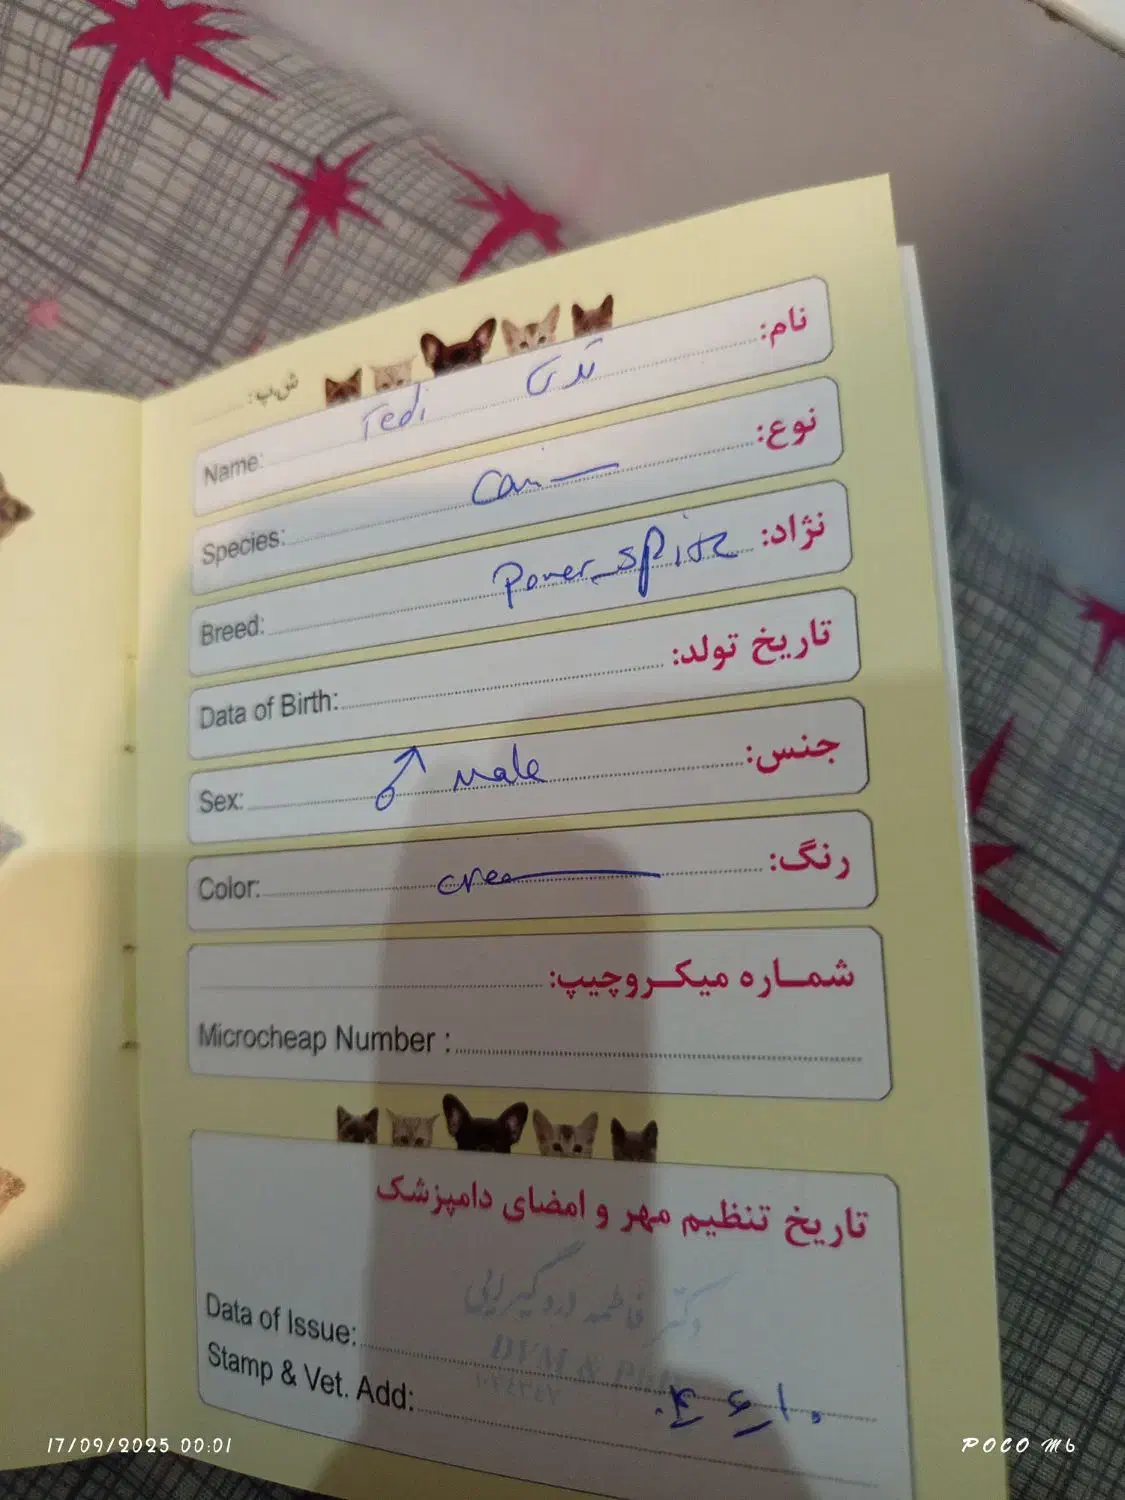 ش.پ:
نام:
Name: Tedi تدی
نوع:
Species:
نژاد:
Breed: Pomer_spitz
تاریخ تولد:
Data of Birth:
جنس:
Sex: ♂ male
رنگ:
Color:
شمـاره میکـروچیپ:
Microcheap Number :
تاریخ تنظیم مهر و امضای دامپزشک
دکتر فاطمه
DVM & PhD
Data of Issue:
Stamp & Vet. Add:
17/09/2025 00:01
POCO M6